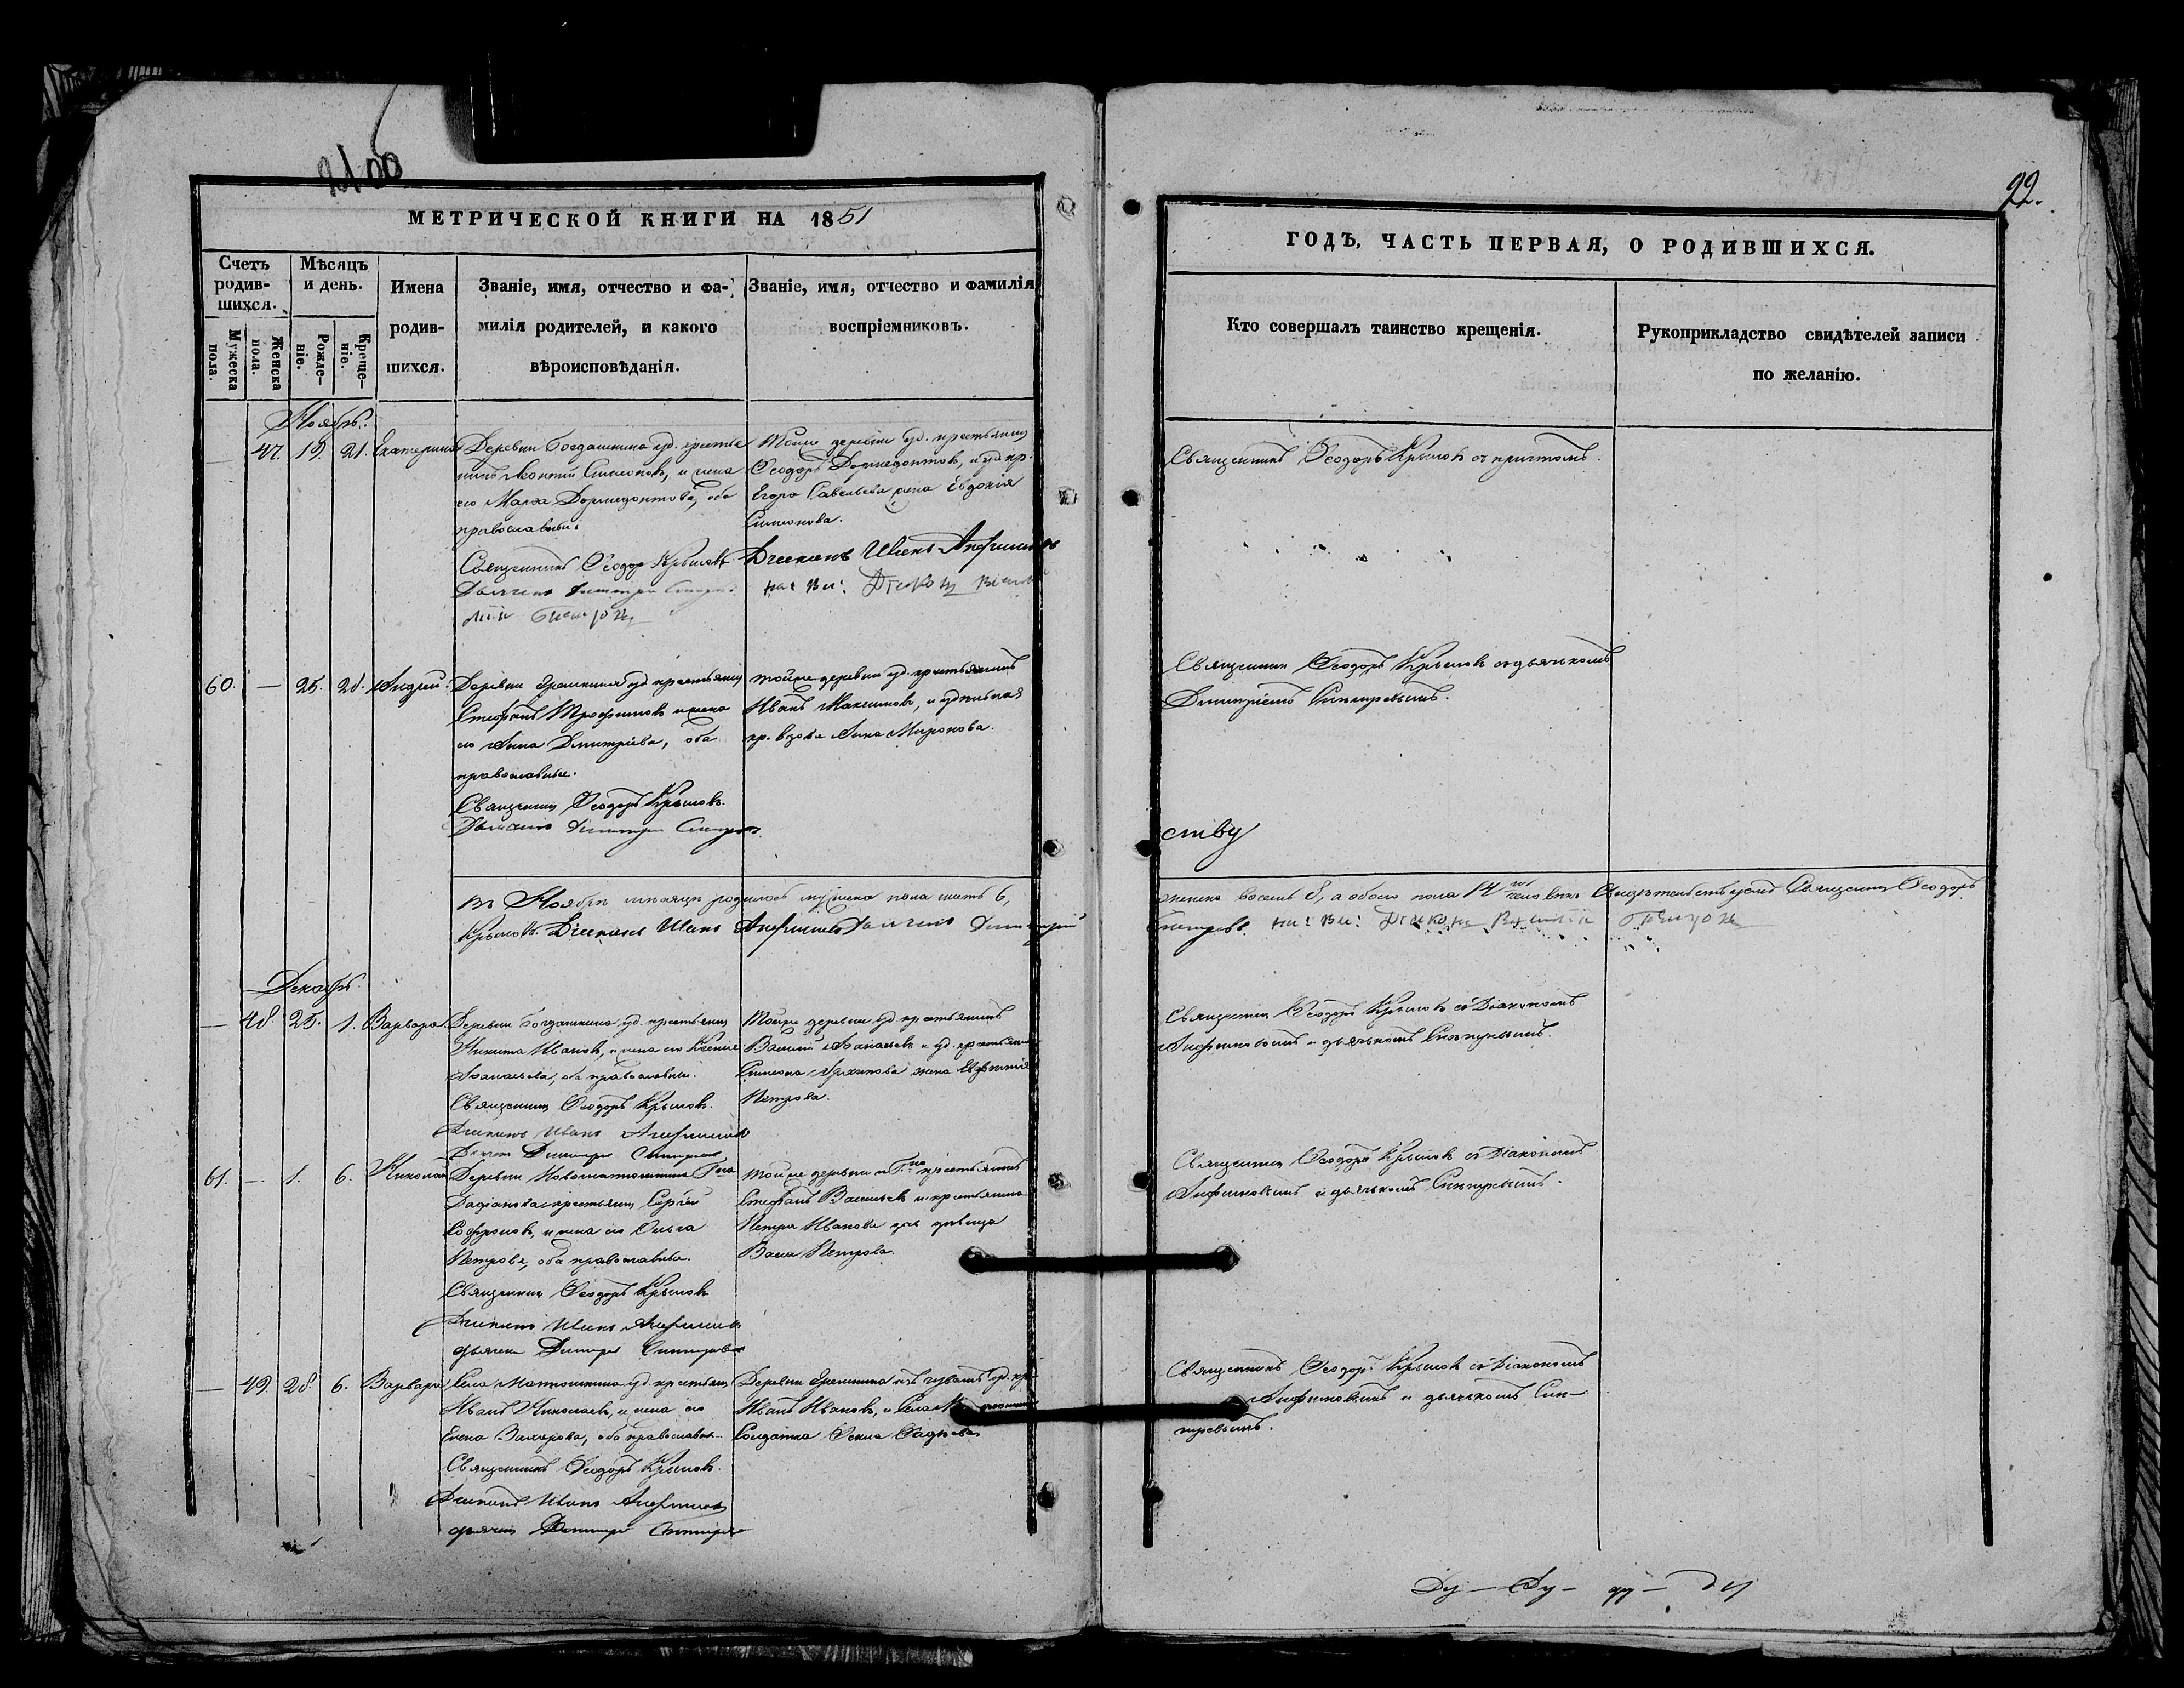 2100
МЕТРИЧЕСКОЙ КНИГИ НА 1851
Счетъ родив-шихся.
Мужеска пола.
Женска пола.
Мѣсяцъ и день.
Рожде-ніе.
Креще-ніе.
Имена родив-шихся.
Званіе, имя, отчество и фа-
милія родителей, и какого
вѣроисповѣданія.
Званіе, имя, отчество и фамилія
воспріемниковъ.
Ноябрь.
— 47. 19. 21. Екатерина
Деревни Богдашкина уд. крестья
нинъ Леонтій Симеоновъ, и жена
его Марѳа Дормедонтова, оба
православны.
Священникъ Ѳеодоръ Крыловъ
Дьячекъ Димитрій
Тойже деревни уд. крестьянинъ
Ѳеодоръ Дормедонтовъ, и уд. кр.
Егора Савельева жена Евдокія
Симеонова.
Діаконъ Иванъ Анфимовъ
60. — 25. 28. Андрей.
Деревни уд. крестьянинъ
Стефанъ Трофимовъ и жена
его Анна Дмитріева, оба
православные.
Священникъ Ѳеодоръ Крыловъ.
Дьячекъ Димитрій
тойже деревни уд. крестьянинъ
Иванъ Максимовъ, и удѣльная
кр. вдова Анна Миронова.
Въ Ноябрѣ мѣсяцѣ родилось мужеска пола шесть 6,
Крыловъ. Діаконъ Иванъ Анфимовъ Дьячекъ Димитрій
Декабрь.
— 48. 25. 1. Варвара.
Деревни Богдашкина уд. крестьянинъ
Никита Ивановъ, и жена его Ксенія
Аѳанасьева, оба православны.
Священникъ Ѳеодоръ Крыловъ.
Діаконъ Иванъ Анфимовъ
Дьячекъ Димитрій
Тойже деревни уд. крестьянинъ
Василій Аѳанасьевъ и уд. крестьянина
Симеона Архипова жена Евфимія
Петрова.
61. — 1. 6. Николай
Деревни Новоматюшкина Гна
крестьянинъ Сергѣй
Софроновъ, и жена его Ольга
Петрова, оба православны.
Священникъ Ѳеодоръ Крыловъ
Діаконъ Иванъ Анфимовъ
дьячекъ Димитрій
тойже деревни и Гна крестьянинъ
Стефанъ Васильевъ и крестьянина
Петра Иванова дочь дѣвица
Васса Петрова.
— 49. 28. 6. Варвара
Села Матюшкина уд. крестьянинъ
Иванъ Николаевъ, и жена его
Елена Захарова, оба православн.
Священникъ Ѳеодоръ Крыловъ.
Діаконъ Иванъ Анфимовъ
дьячекъ Димитрій
Деревни изъ чувашъ уд. кр.
Иванъ Ивановъ, и Села
Солдатка Ѳекла Ѳадѣева
22.
ГОДЪ, ЧАСТЬ ПЕРВАЯ, О РОДИВШИХСЯ.
Кто совершалъ таинство крещенія.
Рукоприкладство свидѣтелей записи
по желанію.
Священникъ Ѳеодоръ Крыловъ съ причтомъ.
Священникъ Ѳеодоръ Крыловъ съ дьячкомъ
Димитріемъ
ству
женска восемь 8, а обоего пола 14 человѣкъ Свидѣтельствуемъ Священникъ Ѳеодоръ
Священникъ Ѳеодоръ Крыловъ съ Діакономъ
Анфимовымъ и дьячкомъ
Священникъ Ѳеодоръ Крыловъ съ Діакономъ
Анфимовымъ и дьячкомъ
Священникъ Ѳеодоръ Крыловъ съ Діакономъ
Анфимовымъ и дьячкомъ